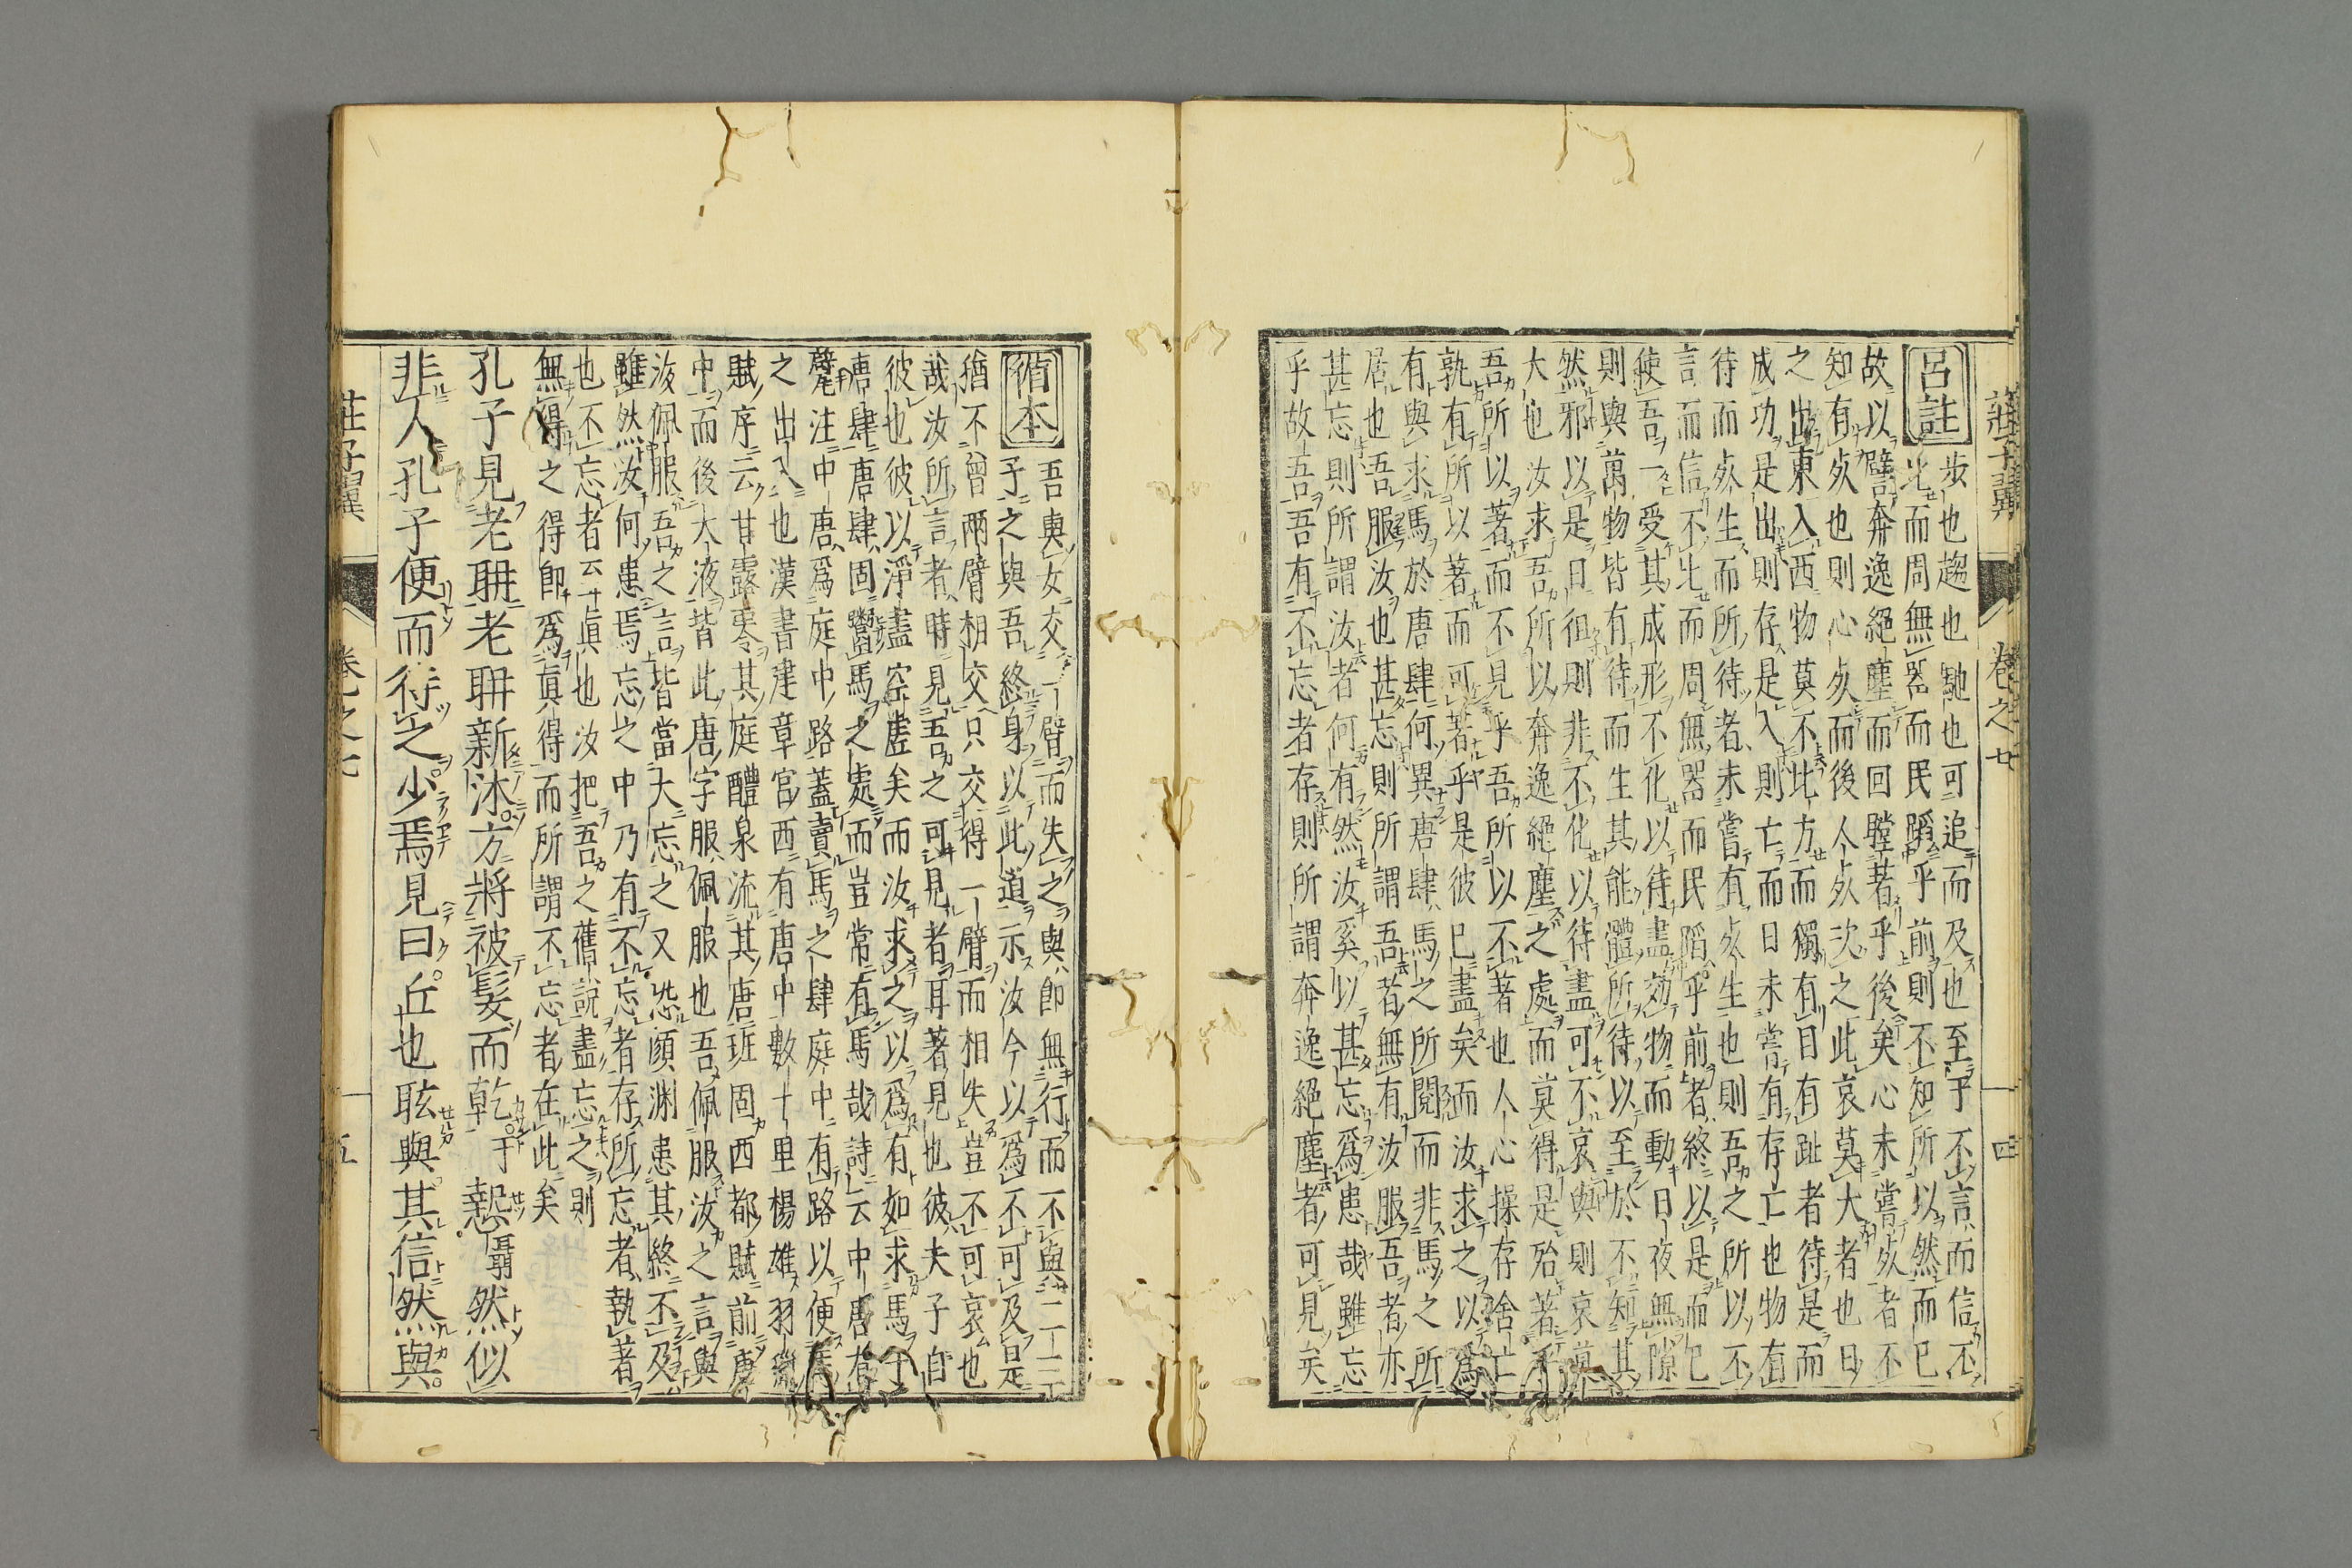 莊子翼 卷之七 四
呂註 步也趨也馳也可追而及也至乎不言而信不
比而周無噐而民蹈乎前則不知所以然而已
故以譬奔逸絕塵而回瞠若乎後矣心未嘗死者不
知有死也則心死而後人死次之此哀莫大者也日
之出東入西物莫不比方而獨有目有趾者待是而
成功是出則存是入則亡而日未嘗有存亡也物有
待而死生而所待者未嘗有死生也則吾之所以不
言而信不比而周無噐而民蹈乎前者終以是而已
使吾一受其成形不化以待盡効物而動日夜無隙
則與萬物皆有待而生其能體所待以至於不知其
然邪以是日徂則非不化以待盡可不哀與則哀莫
大也汝求吾所以奔逸絕塵之處而莫得是殆著乎
吾所以著而不見乎吾所以不著也人心操存舍亡
孰有所以著而可著乎是彼已盡矣而汝求之以爲
有與求馬於唐肆何異唐肆馬之所閱而非馬之所
居也吾服汝也甚忘則所謂吾者無有汝服吾者亦
甚忘則所謂汝者何有然汝奚以甚忘爲患哉雖忘
乎故吾吾有不忘者存則所謂奔逸絕塵者可見矣
循本 吾與女交一臂而失之與即無行而不與二三
子之與吾終身以此道示汝今以爲不可及是
猶不曾兩臂相交只交得一臂而相失豈不可哀也
哉汝所言者時見吾之可見者耳著見也彼夫子自
彼也彼以淨盡空虛矣而汝求之以爲有如求馬于
唐肆唐肆固鬻馬之處而豈常有馬哉詩云中唐有
甓注中唐爲庭中路蓋賣馬之肆庭中有路以便馬
之出入也漢書建章宮西有唐中數十里楊雄羽獵
賦序云甘露零其庭醴泉流其唐班固西都賦前唐
中而後太液皆此唐字服佩服也吾佩服汝之言與
汝佩服吾之言皆當大忘之又恐顏淵患其終不及
雖然汝何患焉忘之中乃有不忘者存所忘者執著
也不忘者云十眞也汝把吾之舊說盡忘之則
無得之得即爲眞得而所謂不忘者在此矣
孔子見老聃老聃新沐方將被髪而乾 慹 然似
非人孔子便而待之少焉見曰丘也眩與其信然與
莊子翼 卷之七 五